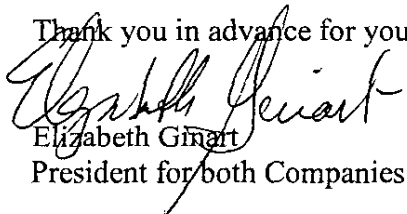 Thank you in advance for you
Elizabeth Ginart
Elizabeth Ginart
President for both Companies